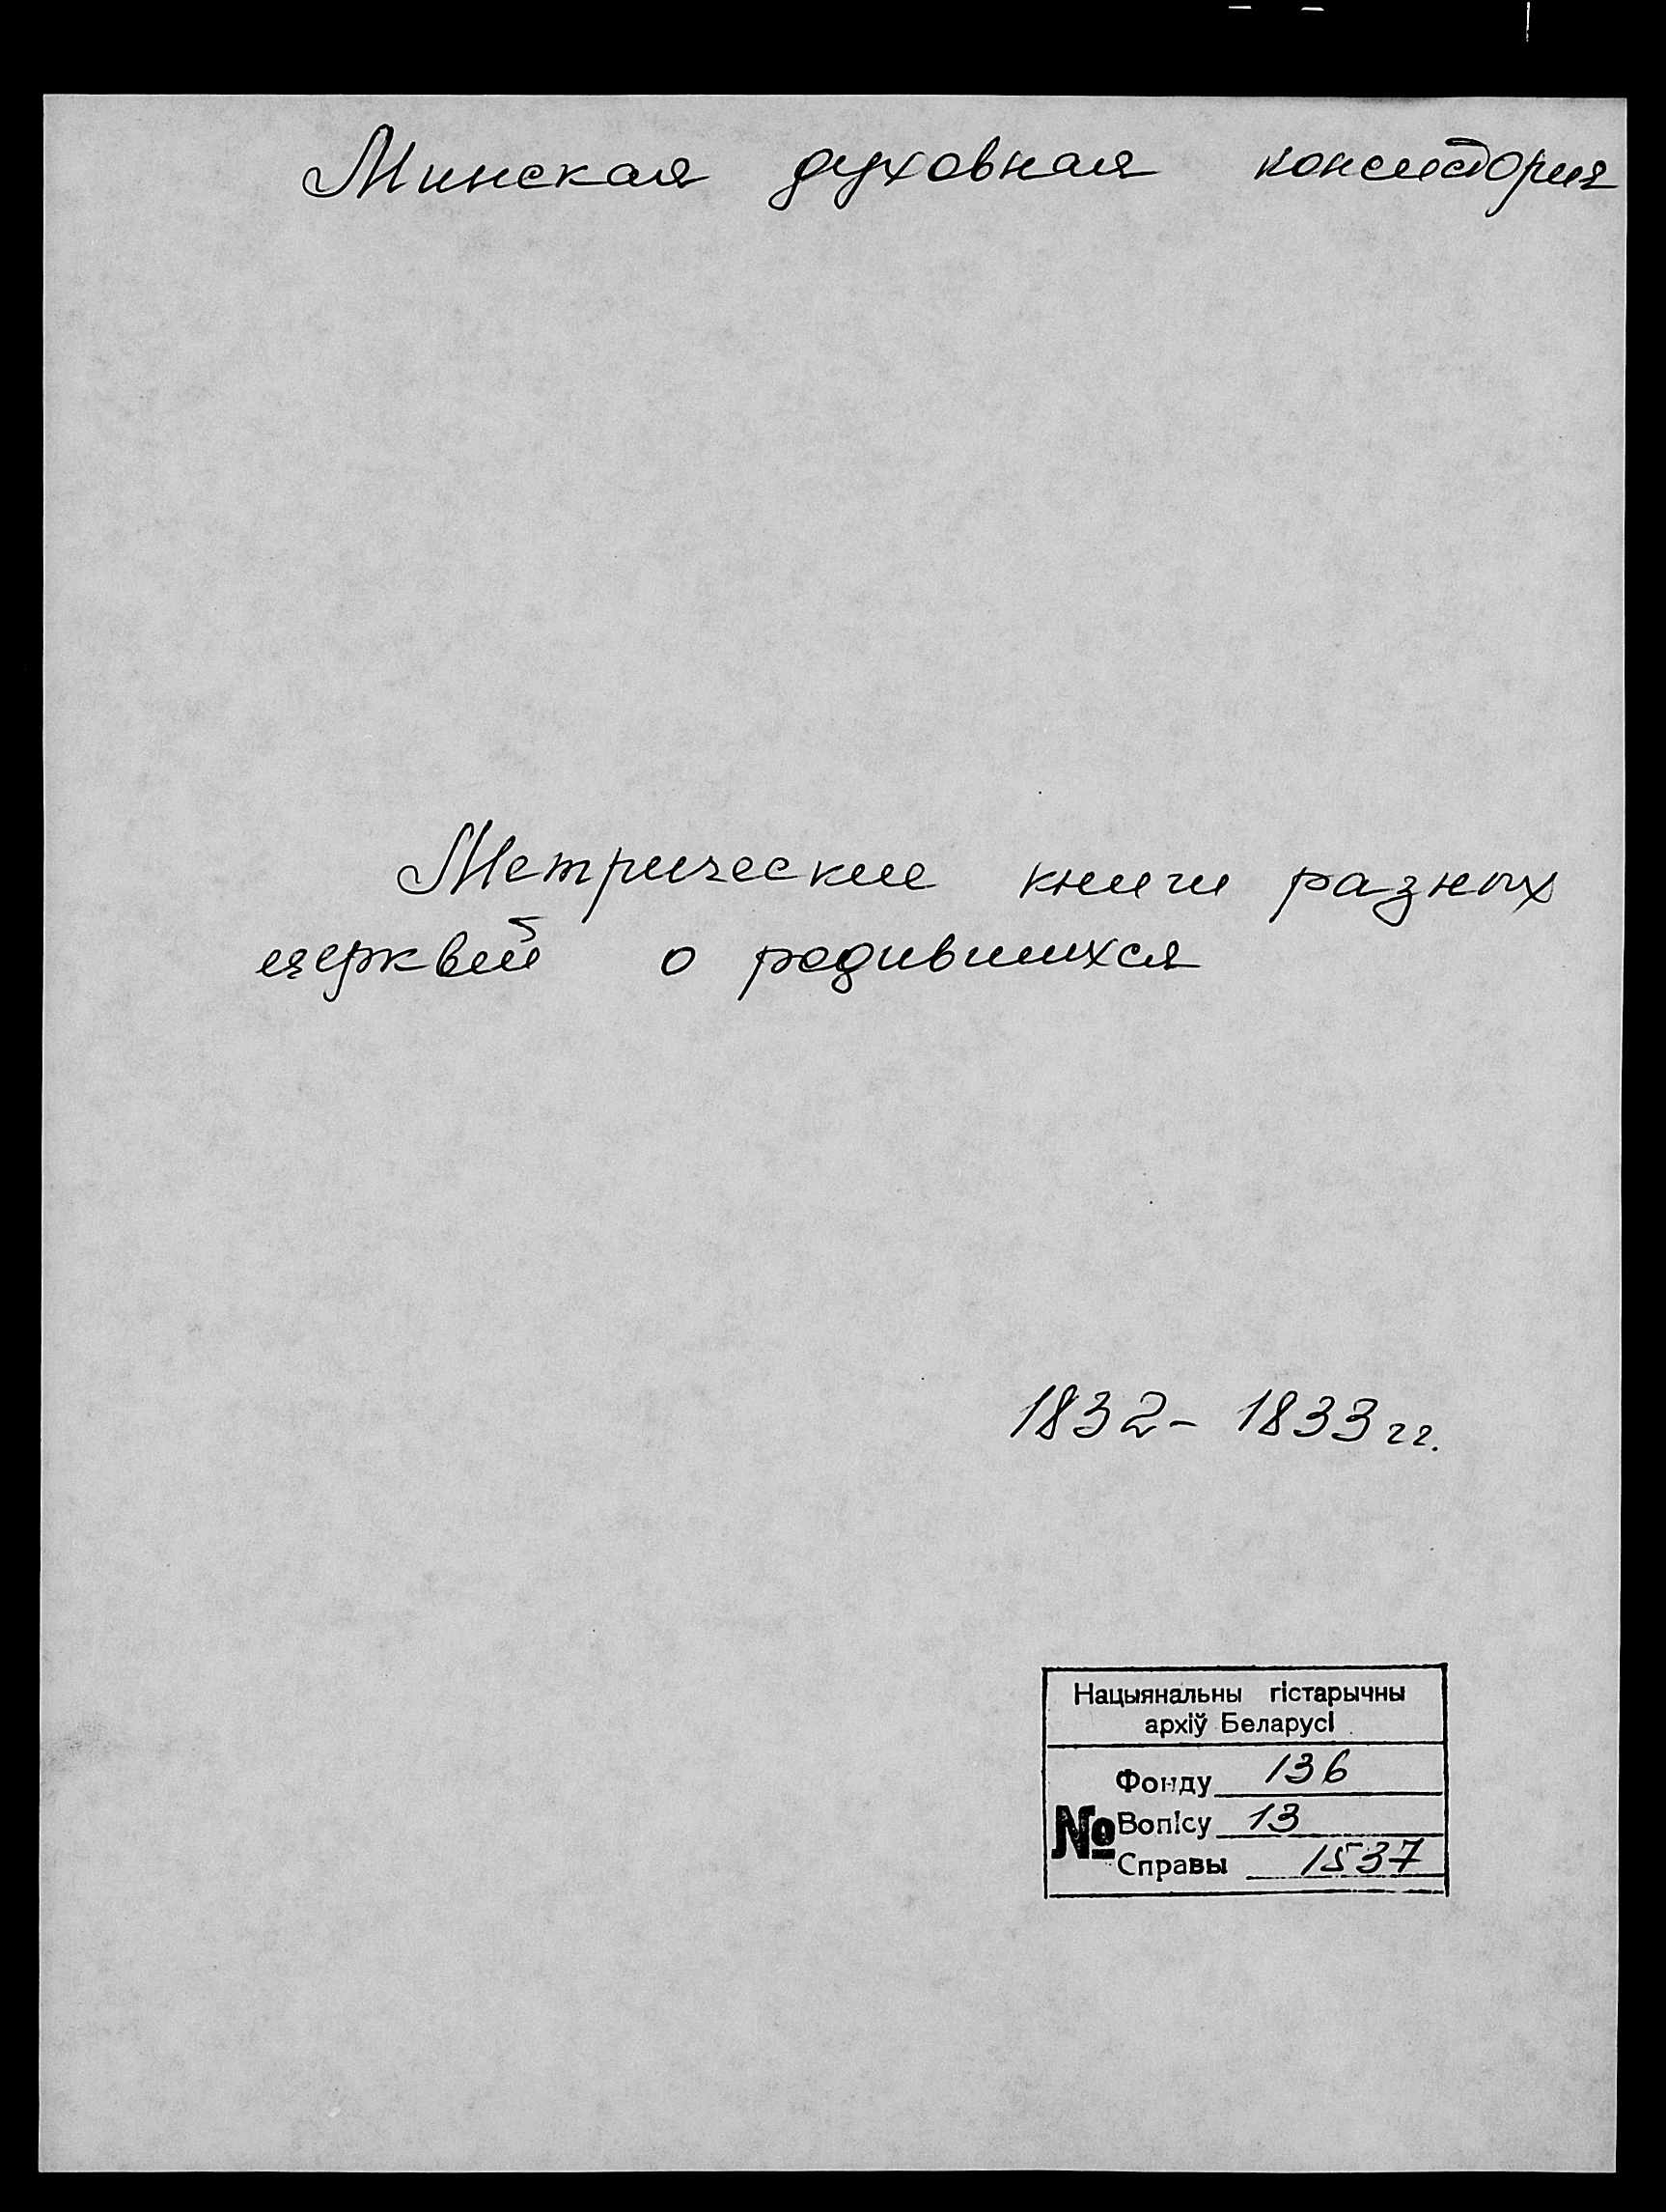 Минская духовная консистория
Метрические книги разных
церквей о родившихся
1832-1833 гг.
Нацыянальны гістарычны
архіў Беларусі
Фонду 136
№ Вопісу 13
Справы 1537